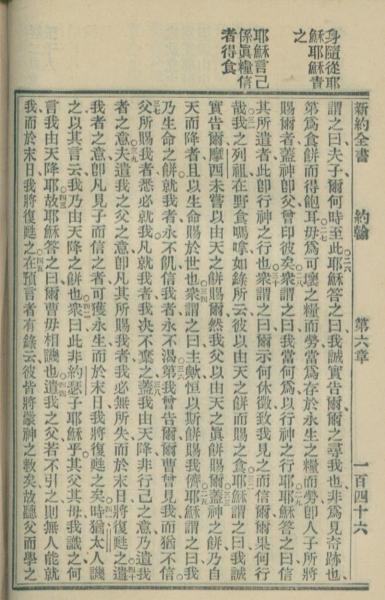 身隨從耶
穌耶穌責
之
耶穌言己
係眞糧信
者得食
新約全書 約翰 第六章 一百四十六
謂之曰夫子爾何時至此耶穌答之曰我誠實告爾爾之尋我也非爲見奇跡也
第爲食餅而得飽耳毋爲可壞之糧而勞當爲存於永生之糧而勞卽人子所將
賜爾者蓋神卽父曾印彼矣衆謂之曰我當何爲以行神之行耶耶穌答之曰信
其所遣者此卽行神之行也衆謂之曰爾示何休徵致我見之而信爾爾果何行
哉我之列祖在野食嗎嗱如錄所云彼以由天之餅而賜之食耶穌謂之曰我誠
實告爾摩西未嘗以由天之餅賜爾然我父以由天之眞餅賜爾蓋神之餅乃自
天而降者且以生命賜於世也衆謂之曰主歟恒以斯餅賜我儕耶穌謂之曰我
乃生命之餅就我者永不飢信我者永不渴第我曾告爾爾曹曾見我而猶不信
父所賜我者悉必就我凡就我者我決不棄之蓋我由天降非行己之意乃遣我
者之意夫遣我之父之意卽凡其所賜我者我必無所失而於末日將復甦之遣
我者之意卽凡見子而信之者可獲永生而於末日我將復甦之矣時猶太人譏
之以其言云我乃由天降之餅也衆曰此非約瑟子耶穌乎其父其母我識之何
言我由天降耶故耶穌答之曰爾曹毋相譏也遣我之父若不引之則無人能就
我而於末日我將復甦之在預言者有錄云彼皆將蒙神之敎矣故聽父而學之